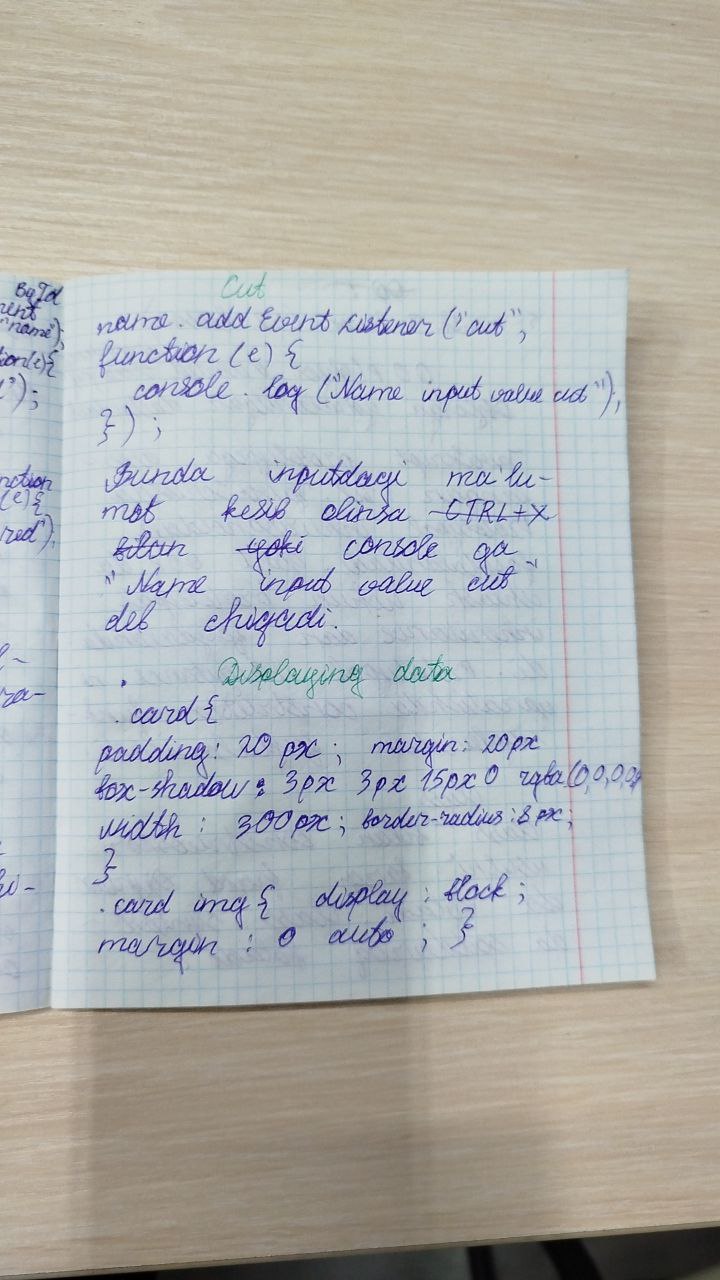 ById
ment
"name");
tion(e){
");
nction
(e){
red")
Cut
name.addEventListener("cut",
function (e) {
console.log("Name input value cut"),
});
Bunda inputdagi ma'lu-
mot kesib olinsa CTRL+X
bilan yoki console ga
"Name input value cut"
deb chiqadi.
Displaying data
.card{
padding: 20 px; margin: 20px
box-shadow: 3px 3px 15px 0 rgba(0,0,0,0
width: 300px; border-radius: 8px;
}
.card img{ display: block;
margin: 0 auto; }